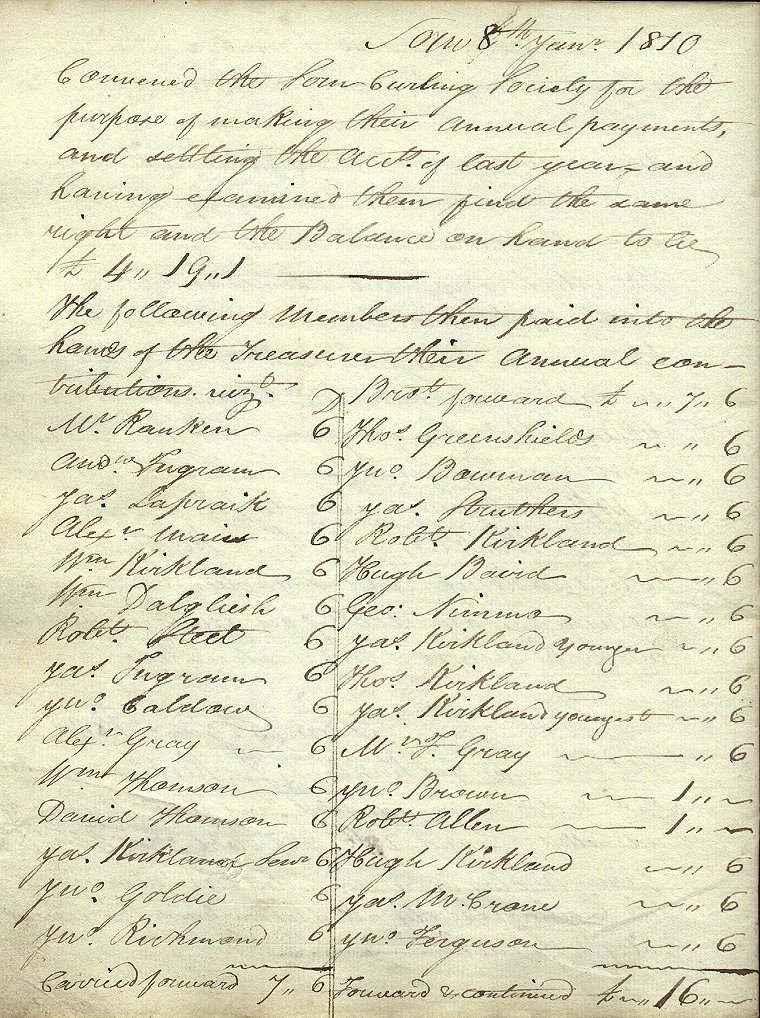 Sorn 8th Janr. 1810
Convened the Sorn Curling Society for the
purpose of making their Annual payments,
and settling the Accts. of last year, and
having examined them find the same
right and the Balance on hand to be
£ 4,, 19,, 1
The following Members then paid into the
hands of the Treasurer their Annual con-
tributions. vizt.
D
Mr. Ranken 6
Andw. Ingram 6
Jas. Lapraik 6
Alexr. Mair 6
Wm. Kirkland 6
Wm. Dalgliesh 6
Robt. Steel 6
Jas. Ingram 6
Jno. Caldow 6
Alexr. Gray 6
Wm. Thomson 6
David Thomson 6
Jas. Kirkland Senr. 6
Jno. Goldie 6
Jno. Richmond 6
Carried forward 7,, 6
Brot. forward £ ~ ,, 7,, 6
Thos. Greenshields ~ ,, 6
Jno. Bowman ~ ,, 6
Jas. Struthers ~ ,, 6
Robt. Kirkland ~ ,, 6
Hugh Baird ~ ,, 6
Geo. Nimmo ~ ,, 6
Jas. Kirkland younger ~ ,, 6
Thos. Kirkland ~ ,, 6
Jas. Kirkland youngest ~ ,, 6
Mr. F. Gray ,, 6
Jno. Brown ~ 1,, ~
Robt. Allen 1,, ~
Hugh Kirkland ~ ,, 6
Jas. McCrone ~ ,, 6
Jno. Ferguson ~ ,, 6
Forward & continued £ ~ ,, 16,, ~